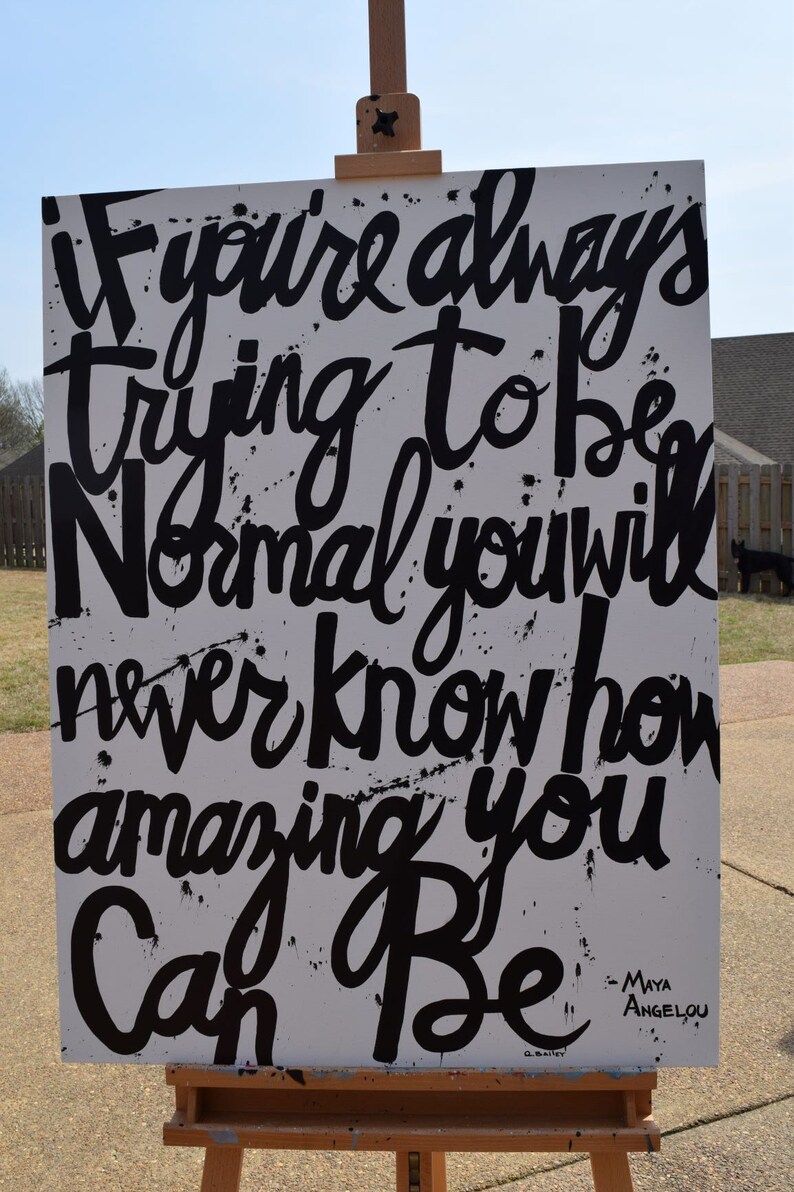 iF you're always
trying to be
Normal you will
never know how
amazing you
Can Be
- MAYA
ANGELOU
Q.BAILEY